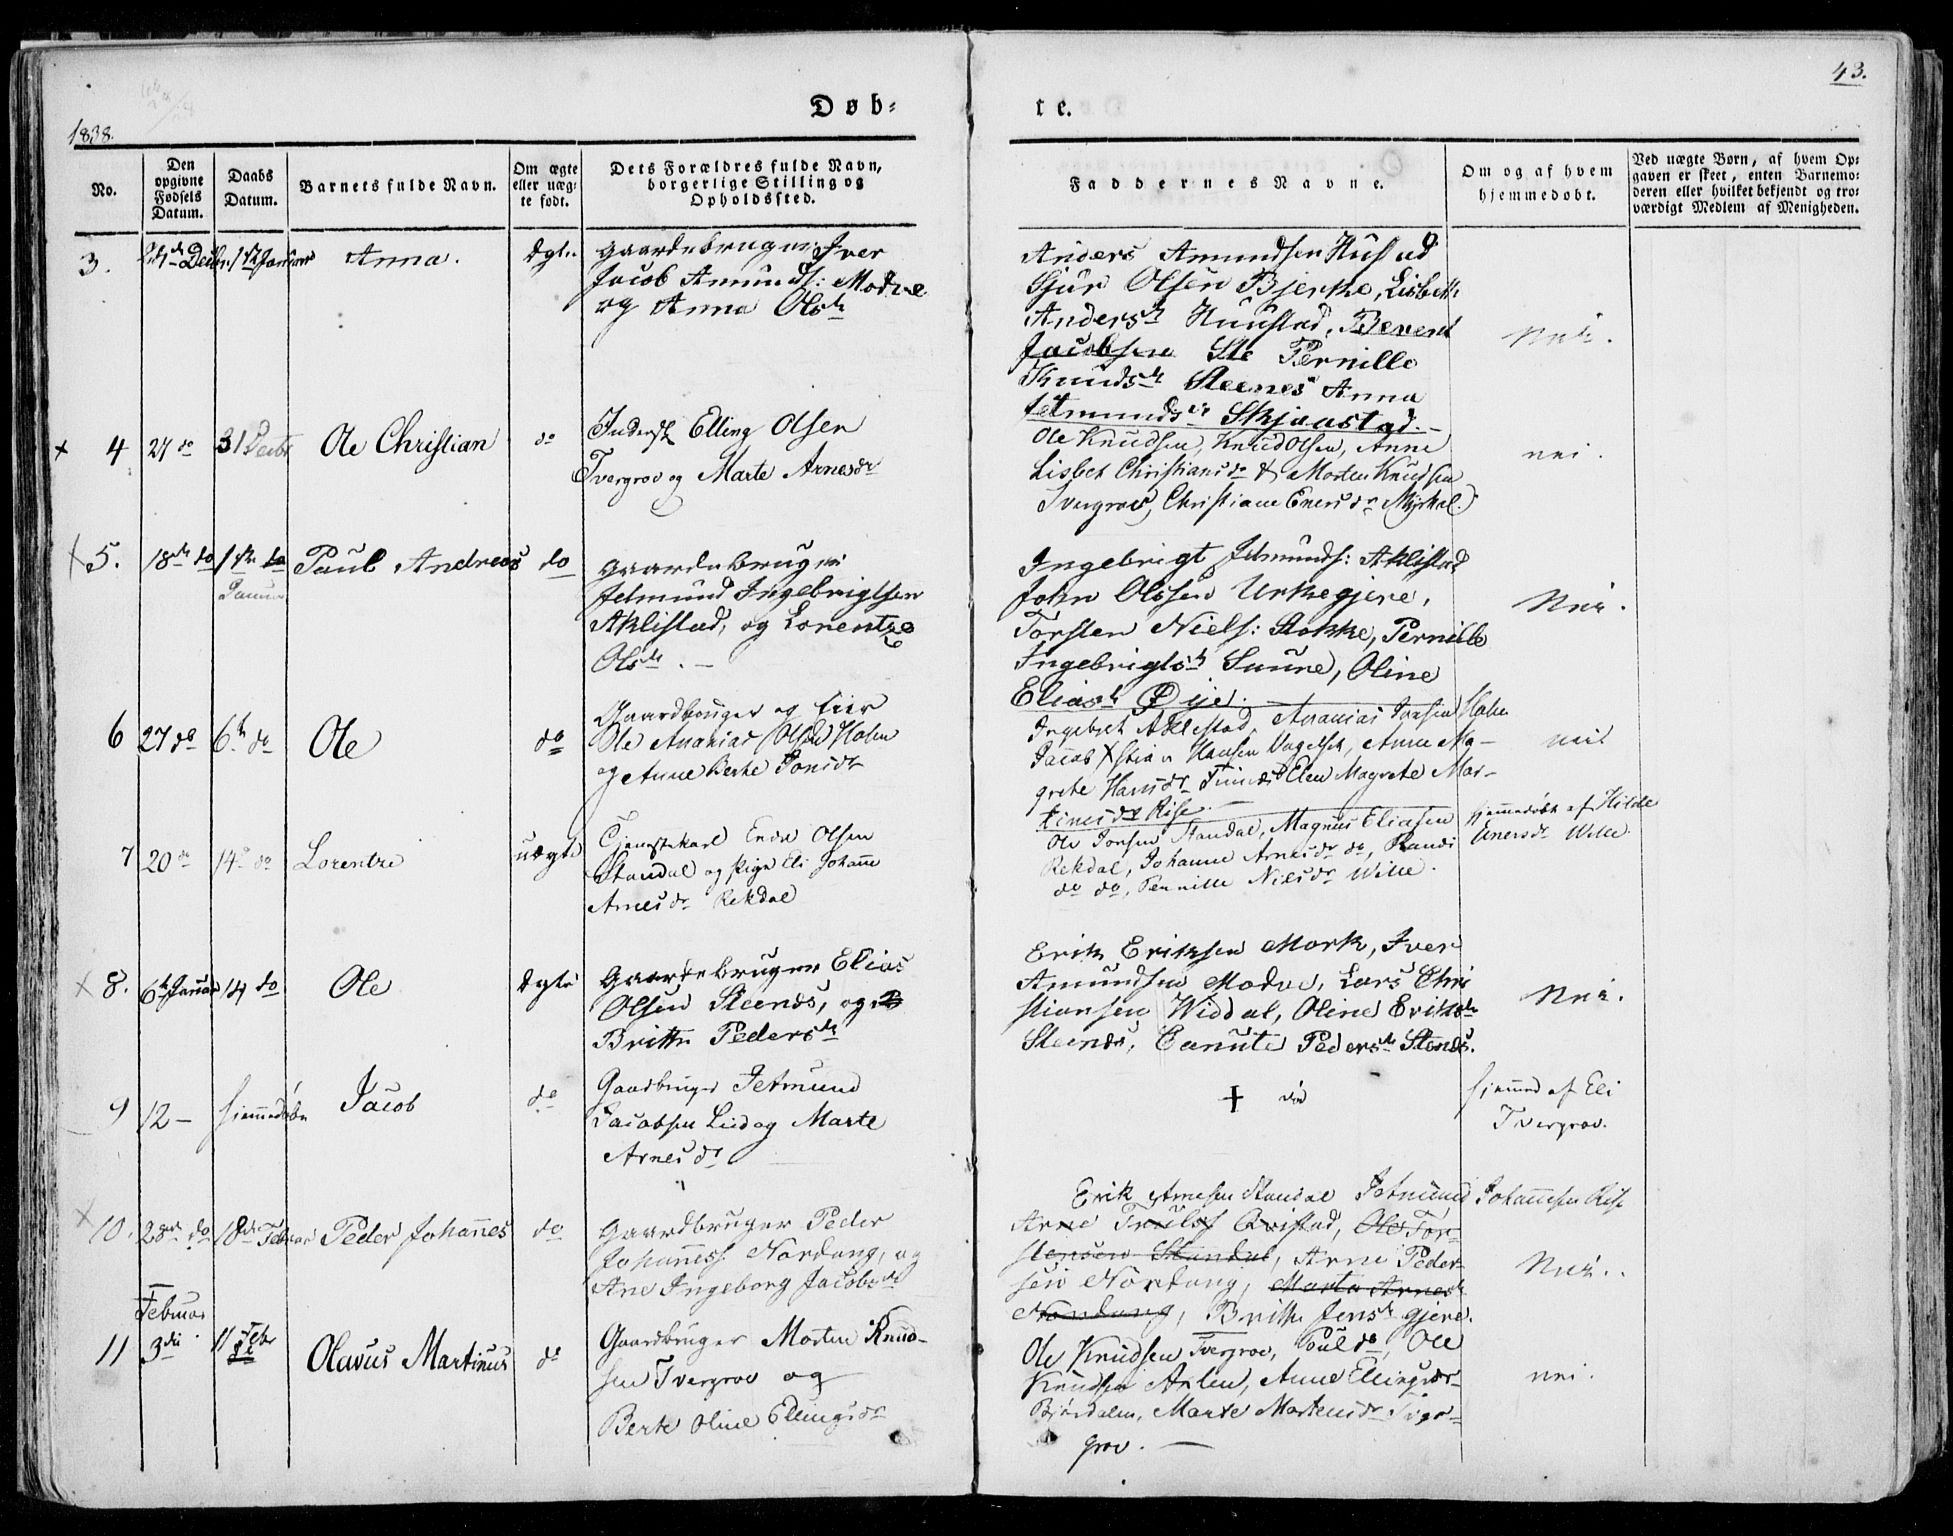 43.
Døb-
te.
1838.
No.
Den opgivne Fødsels Datum.
Daabs Datum.
Barnets fulde Navn.
Om ægte eller uæg-te født.
Dets Forældres fulde Navn, borgerlige Stilling og Opholdssted.
Faddernes Navne.
Om og af hvem hjemmedøbt.
Ved uægte Børn, af hvem Op-gaven er skeet, enten Barnemo-deren eller hvilket bekjendt og tro-værdigt Medlem af Menigheden.
3.
Anna.
gaardebruger Iver
Jacob Amunds: Modve
og Anna Olsdr
Anders Amundsen Hustad
Sjur Olsen Bjerke, Lisbeth
Andersdr Huustad, Bevent
Jacobsen Sle Pernille
Knudsdr Steenes Anna
Jetmundsdr Skjaastad.
Nei.
4
27 do
31 Decbr
Ole Christian
do
Inderst Elling Olsen
Tvergrov og Marte Arnesdr
Ole Knudsen, Knud Olsen, Anne
Lisbet Christiansdr & Morten Knudsen
Tvergrov, Christiane Enersdr Myrkal.
nei.
5.
18de do
1ste do
Januar
Paul Andreas
do
gaardebruger
Jetmund Ingebrigtsen
Aklistad, og Lorentze
Olsdr. –
Ingebrigt Jetmunds: Aklistad
John Olssen Urkegjere,
Torsten Niels: Stokke, Pernille
Ingebrigtsdr Suure, Oline
Eliasdr Øje.
Nei.
6
27 do
6te do
Ole
do
Gaardbruger og Eier
Ole Ananias Olsen Holen
og Anne Berte Jonsdr
Ingebret Aklestad, Ananias Jonsen Holen
Jacob Xstian Hansen, Anne Ma-
grete Hansdr Elen Magrete Mar-
tinesdr Rise
nei
7
20 do
14 do
Lorentze
uægte
Tjenestekarl Endre Olsen
Standal og Pige Eli Johanne
Arnesdr Rekdal
Ole Jonsen Standal, Magnus Eliasen
Rekdal, Johanne Arnesdr do, Randi
do do, Pernille Nielsdr Wille.
hjemmedøbt af Hilde
Wille
8.
6te Januar
14 do
Ole
Ægte
Gaardebruger Elias
Olsen Steenes, og
Britte Pedersdr
Erik Eriksen Mork, Iver
Amundsen Modve, Lars Chri
stiansen Widdal, Oline Eriksdr
Steenes, Canute Pedersdr Stenes.
Nei.
9
12 –
hjemmedøbt
Jacob
do
Gaardbruger Jetmund
Jacobsen Lid og Marte
Arnesdr
†
hjemmed af Eli
Tvergrov.
10.
28de do
18de Februar
Peder Johannes
do
Gaardbruger Peder
Johanness. Nordang, og
Ane Ingeborg Jacobsdr
Erik Arnesen Standal Jetmund Johannesen Rise
Arne Trulss Qvistad, Ole Tor-
stensen Standal, Arne Peder-
sen Nordang, Marta Arnesdr
Nordang, Brithe Jensdr gjere.
Nei.
Februar
11
3die
11 Febr
Olavus Martinus
do
Gaardbruger Morten Knud-
sen Tvergrov og
Berte Oline Ellingsdr
Ole Knudsen Tvergrov, Poul do, Ole
Knudsen Aklen, Anne Ellingsdr
Bjørdalen, Marte Mortensdr Tver-
grov. –
nei.